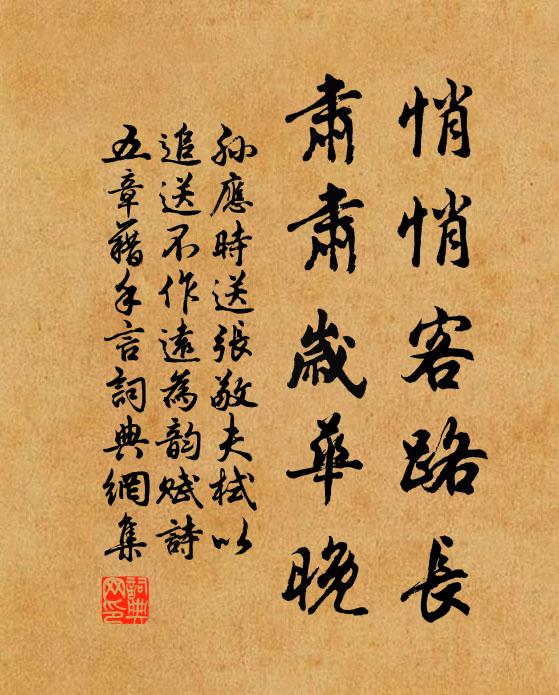 悄悄客路長
肅肅歲華晚
孫應時送張敬夫栻以
追送不作遠為韵賦詩
五章藉手言詞典網集
詞典
网印